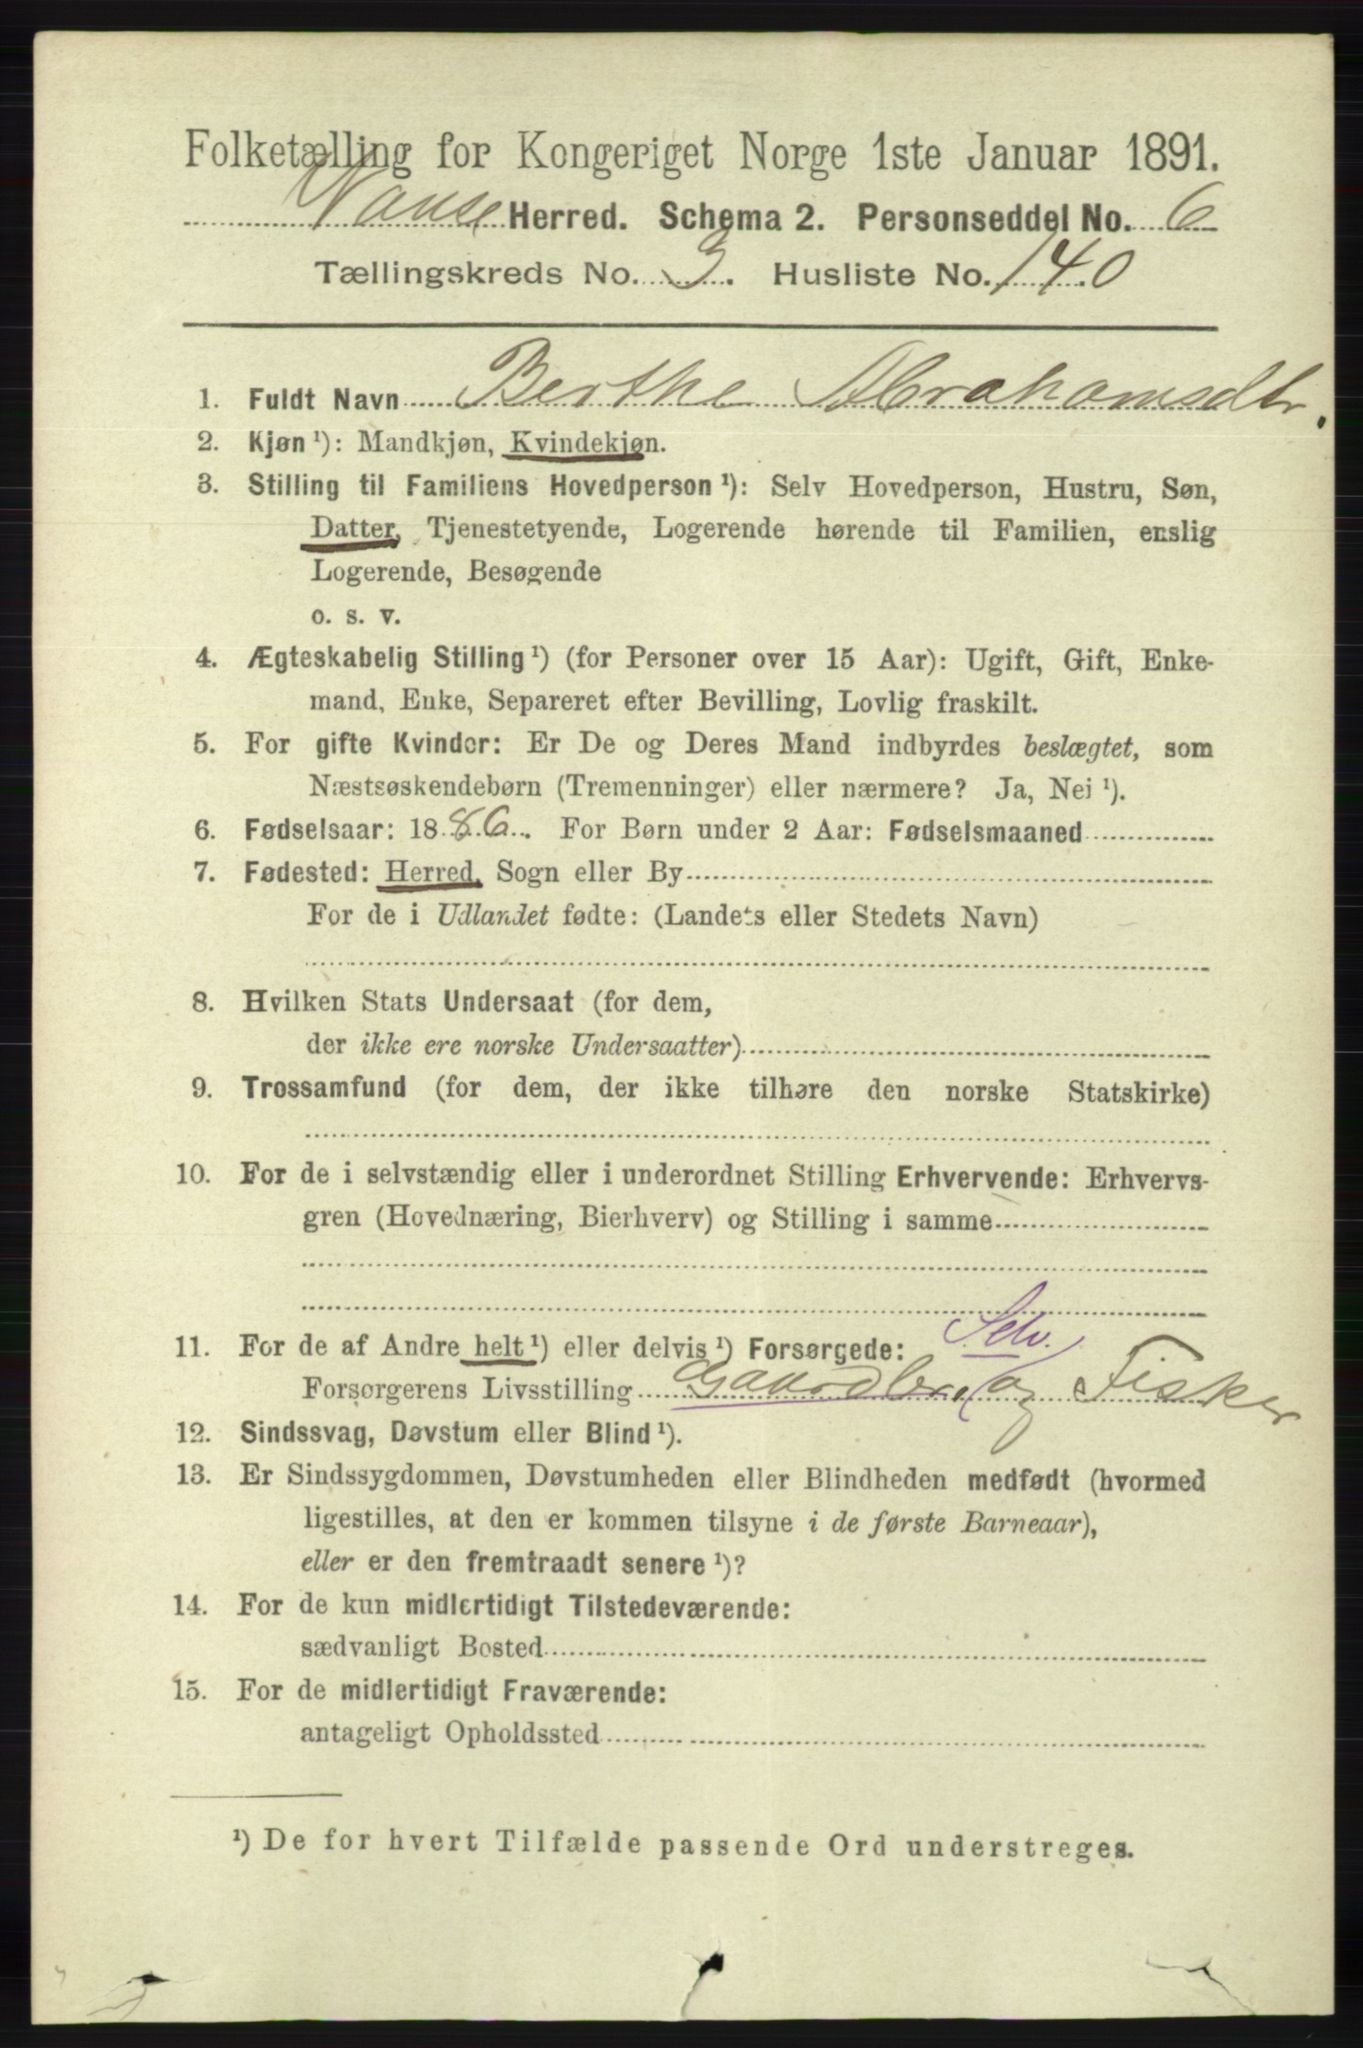 Folketælling for Kongeriget Norge 1ste Januar 1891.
Vanse Herred. Schema 2. Personseddel No. 6
Tællingskreds No. 3. Husliste No. 140
1. Fuldt Navn Berthe Abrahamsdtr.
2. Kjøn ¹): Mandkjøn, Kvindekjøn.
3. Stilling til Familiens Hovedperson ¹): Selv Hovedperson, Hustru, Søn,
Datter, Tjenestetyende, Logerende hørende til Familien, enslig
Logerende, Besøgende
o. s. v.
4. Ægteskabelig Stilling ¹) (for Personer over 15 Aar): Ugift, Gift, Enke-
mand, Enke, Separeret efter Bevilling, Lovlig fraskilt.
5. For gifte Kvinder: Er De og Deres Mand indbyrdes beslægtet, som
Næstsøskendebørn (Tremenninger) eller nærmere? Ja, Nei ¹).
6. Fødselsaar: 1886. For Børn under 2 Aar: Fødselsmaaned
7. Fødested: Herred, Sogn eller By
For de i Udlandet fødte: (Landets eller Stedets Navn)
8. Hvilken Stats Undersaat (for dem,
der ikke ere norske Undersaatter)
9. Trossamfund (for dem, der ikke tilhøre den norske Statskirke)
10. For de i selvstændig eller i underordnet Stilling Erhvervende: Erhvervs-
gren (Hovednæring, Bierhverv) og Stilling i samme
Selv.
11. For de af Andre helt ¹) eller delvis ¹) Forsørgede:
Forsørgerens Livsstilling Gaardbr. og Fisker
12. Sindssvag, Døvstum eller Blind ¹).
13. Er Sindssygdommen, Døvstumheden eller Blindheden medfødt (hvormed
ligestilles, at den er kommen tilsyne i de første Barneaar),
eller er den fremtraadt senere ¹)?
14. For de kun midlertidigt Tilstedeværende:
sædvanligt Bosted
15. For de midlertidigt Fraværende:
antageligt Opholdssted
¹) De for hvert Tilfælde passende Ord understreges.